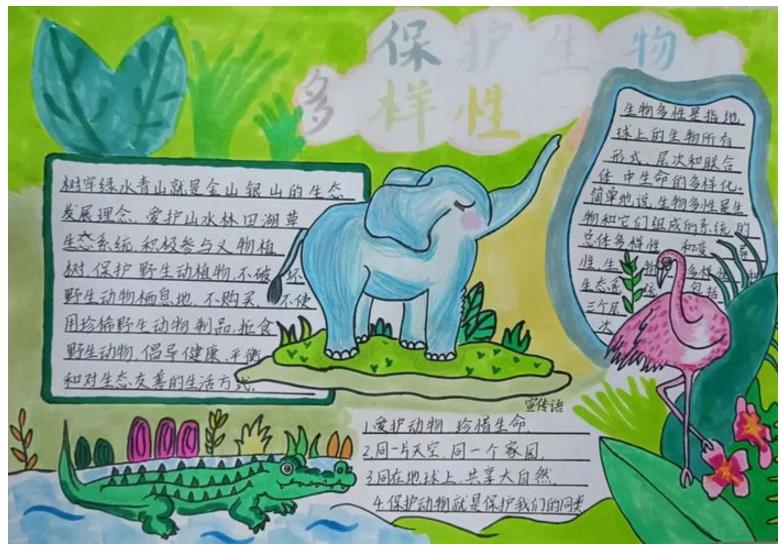 保护生物
多样性
树牢绿水青山就是金山银山的生态
发展理念,爱护山水林田湖草
生态系统,积极参与义物植
树,保护野生动植物,不破坏
野生动物栖息地,不购买,不使
用珍稀野生动物制品,拒食
野生动物,倡导健康、平衡
和对生态友善的生活方式.
生物多性是指地
球上的生物所有
形式、层次和联合
体中生命的多样化.
简单地说,生物多性是生
物和它们组成的系统的
总体多样性 和变
性、生 物 多样性
生态系 统 包括
三个层
次
宣传语
1.爱护动物 珍惜生命.
2.同一片天空,同一个家园.
3.同在地球上,共享大自然.
4.保护动物就是保护我们的同类